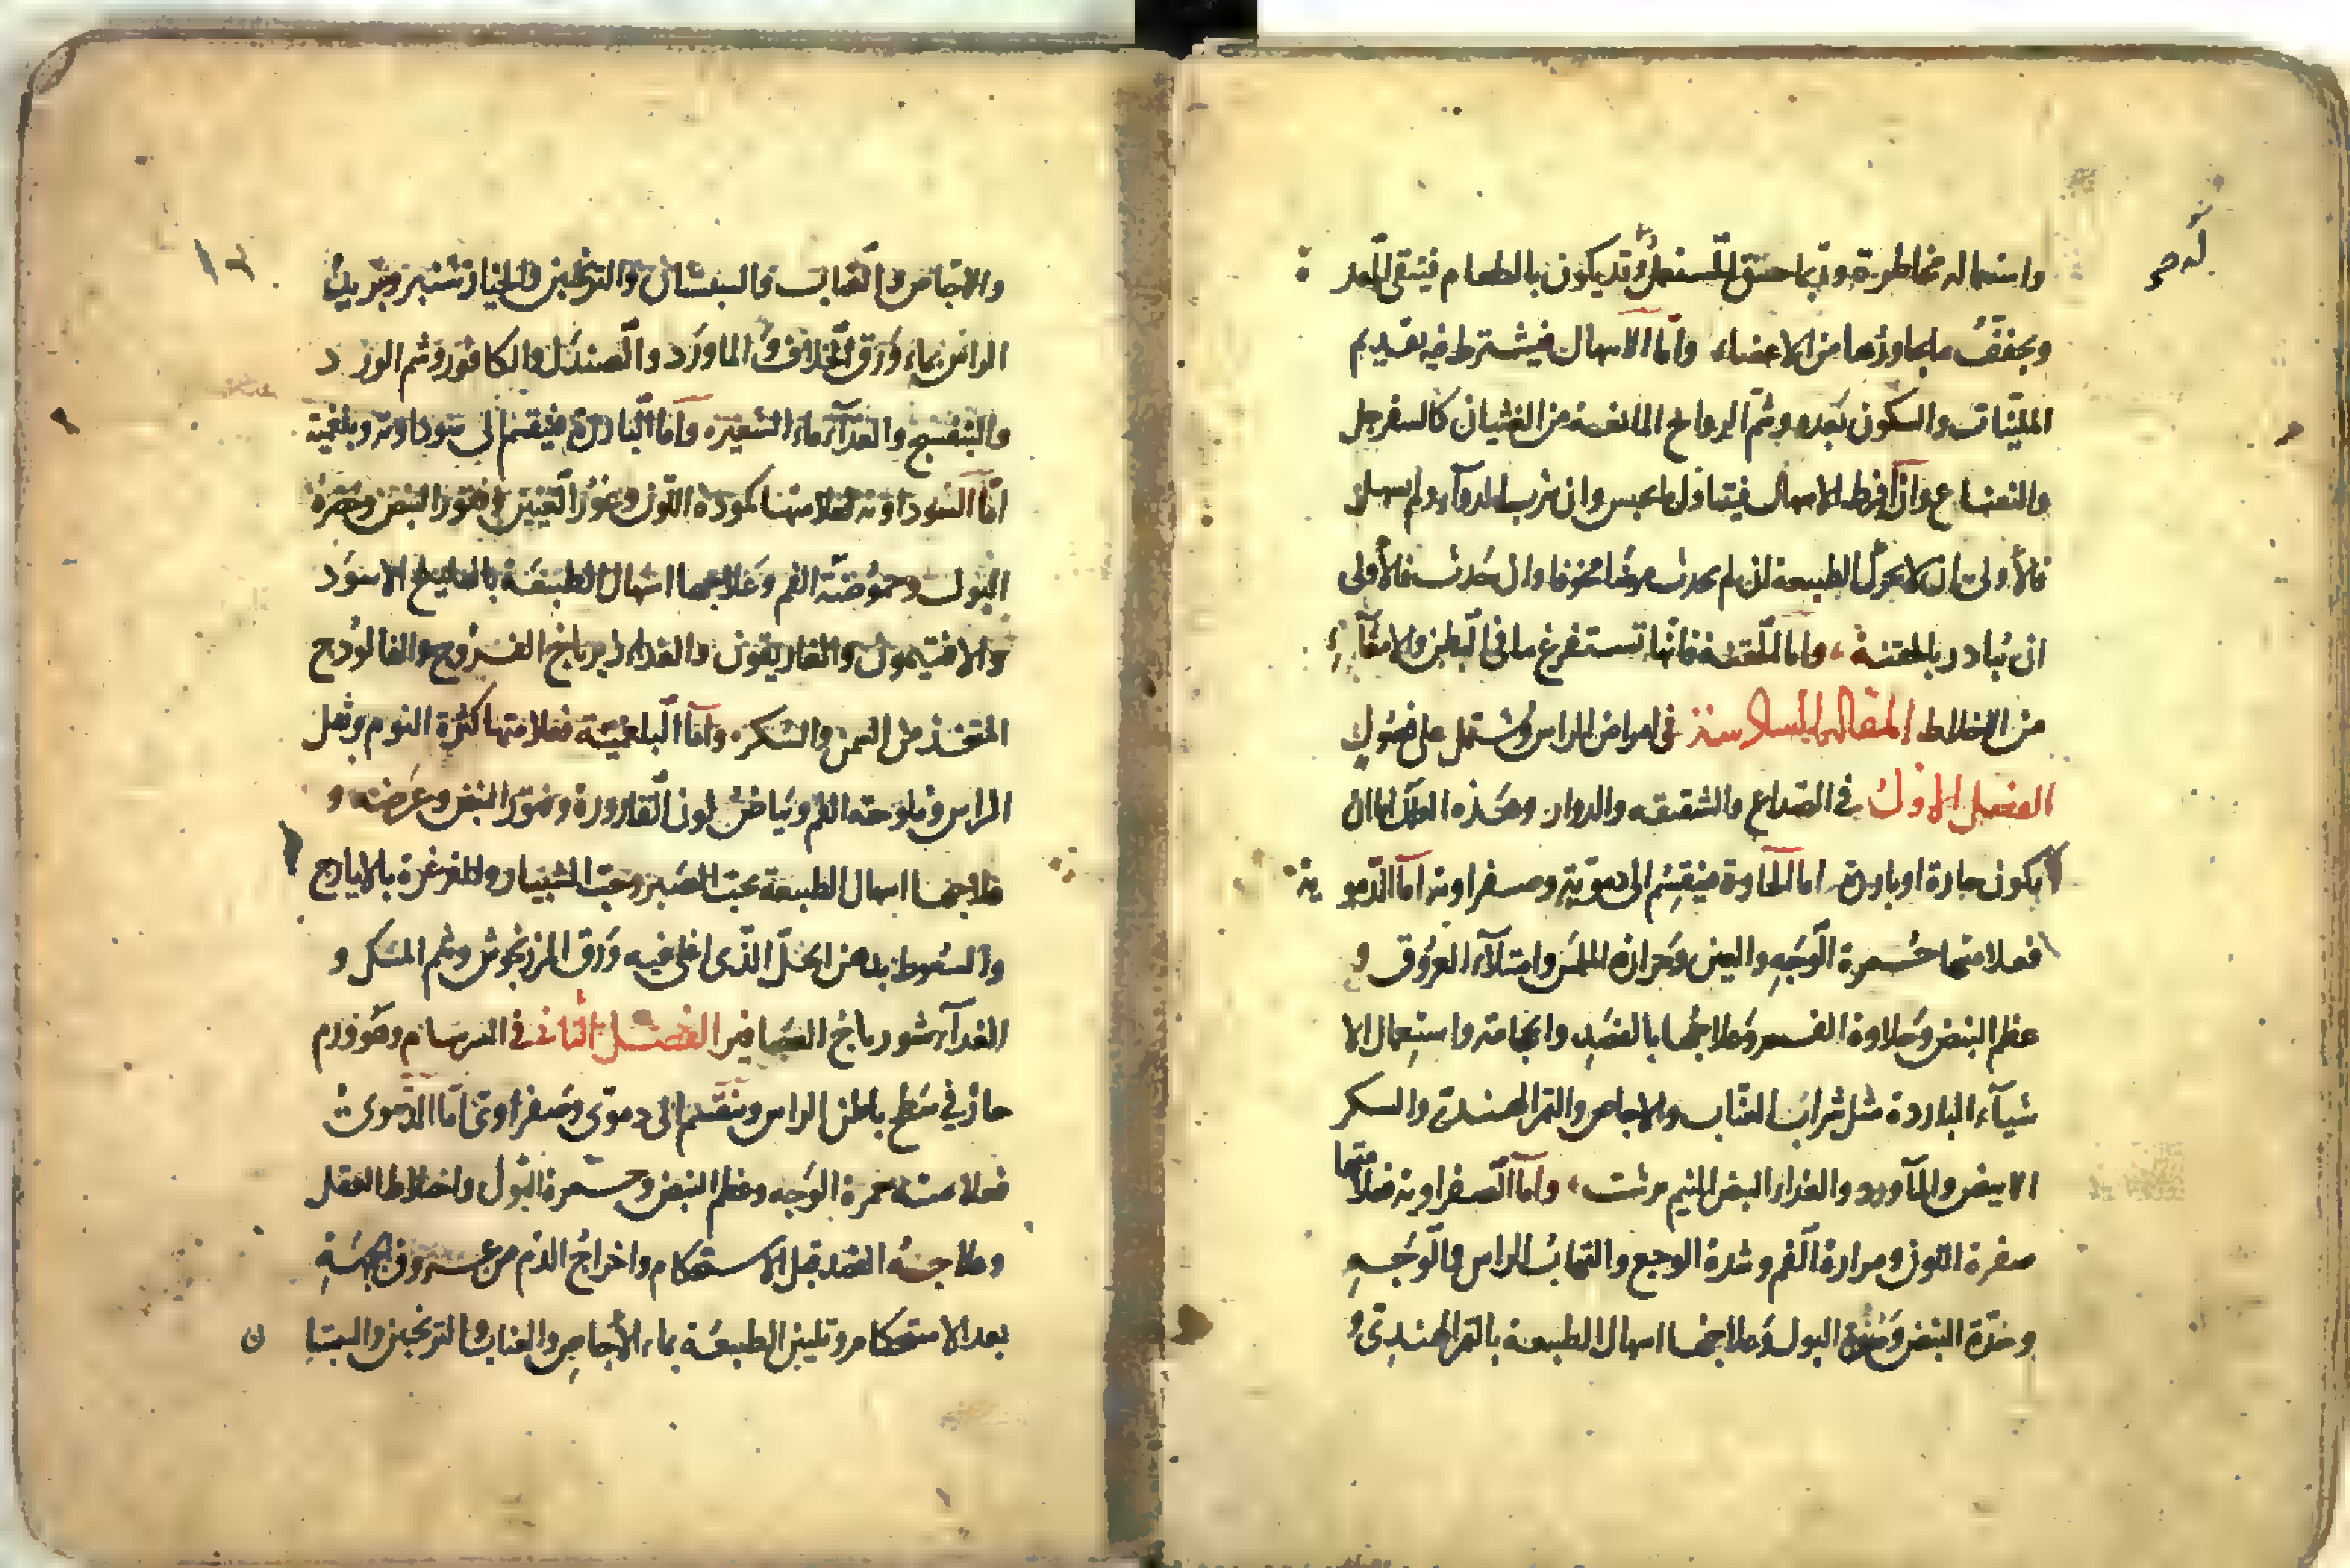 واستعماله مخاطرة وربما خنق المستعمل وقد يكون بالطعام فينقى المعد
ويجفف ما يجاورها من الاعضاء واما الاسهال فيشترط فيه تقديم
الملينات والسكون بعده وشم الروايح المانعة من الغثيان كالسفرجل
والنعناع واذا افرط الاسهال فيتناول ما يحبس وان شرب الدواء ولم يسهل
فالأولى ان لا يحرك الطبيعة ان لم يحدث مرضا مخوفا وان حدث فالأولى
ان يبادر بالحقنة واما الحقنة فانها تستفرغ ما في البطن والامعآء
من الاخلاط المقالة السادسة في امراض الراس وتشتمل على فصول
الفصل الاول في الصداع والشقيقه والدوار وهذه العلل اما ان
يكون حارة او باردة اما الحارة فينقسم الى دموية وصفراوية اما الدمو ية
فعلامتها حمرة الوجه والعين وحرارة الملمس وامتلآء العروق و
عظم النبض وحلاوة الفم وعلاجها بالفصد والحجامة واستعمال الا
شيآء الباردة مثل شراب العناب والاجاص والتمر الهندي والسكر
الابيض والمآورد والغذاء البيض النيم برشت واما الصفراوية فعلامتها
صفرة اللون ومرارة الفم وشدة الوجع والتهاب الراس والوجه
وحدة النبض البول وعلاجها اسهال الطبيعة بالتمر الهندي و
والاجاص والعناب والترنجبين والخيار شنبر وتبريد
الراس بماء ورق الخلاف والماورد والصندل والكافور وشم الورد
والبنفسج والغذآء ماء الشعير واما الباردة فينقسم الى سوداوية وبلغمية
اما السوداوية فعلامتها كمودة اللون وغور العينين وفتور النبض
البول وحموضة الفم وعلاجها اسهال الطبيعة بالمطبوخ الاسود
والافتيمون والغاريقون والغذاء اسفيدباج الفروج والفالوذج
المتخذ من السمن والسكر واما البلغمية فعلامتها كثرة النوم وثقل
الراس وملوحة الفم وبياض لون القارورة وفتور النبض وعرضه و
علاجها اسهال الطبيعة بحب الصبر وحب الشبيار والغرغرة بالايارج
والسعوط بدهن الخل الذي اغلي فيه ورق المرزنجوش وشم المسك و
الغذآء شورباج العصافير الفصل الثاني في السرسام وهو ورم
حار في سطح باطن الراس وينقسم الى دموى وصفراوى اما الدموى
فعلامته حمرة الوجه وعظم النبض وحمرة البول واختلاط العقل
وعلاجه الفصد قبل الاستحكام واخراج الدم من عروق الجبهة
بعد الاستحكام وتليين الطبيعة بماء الأجاص والعناب والترنجبين